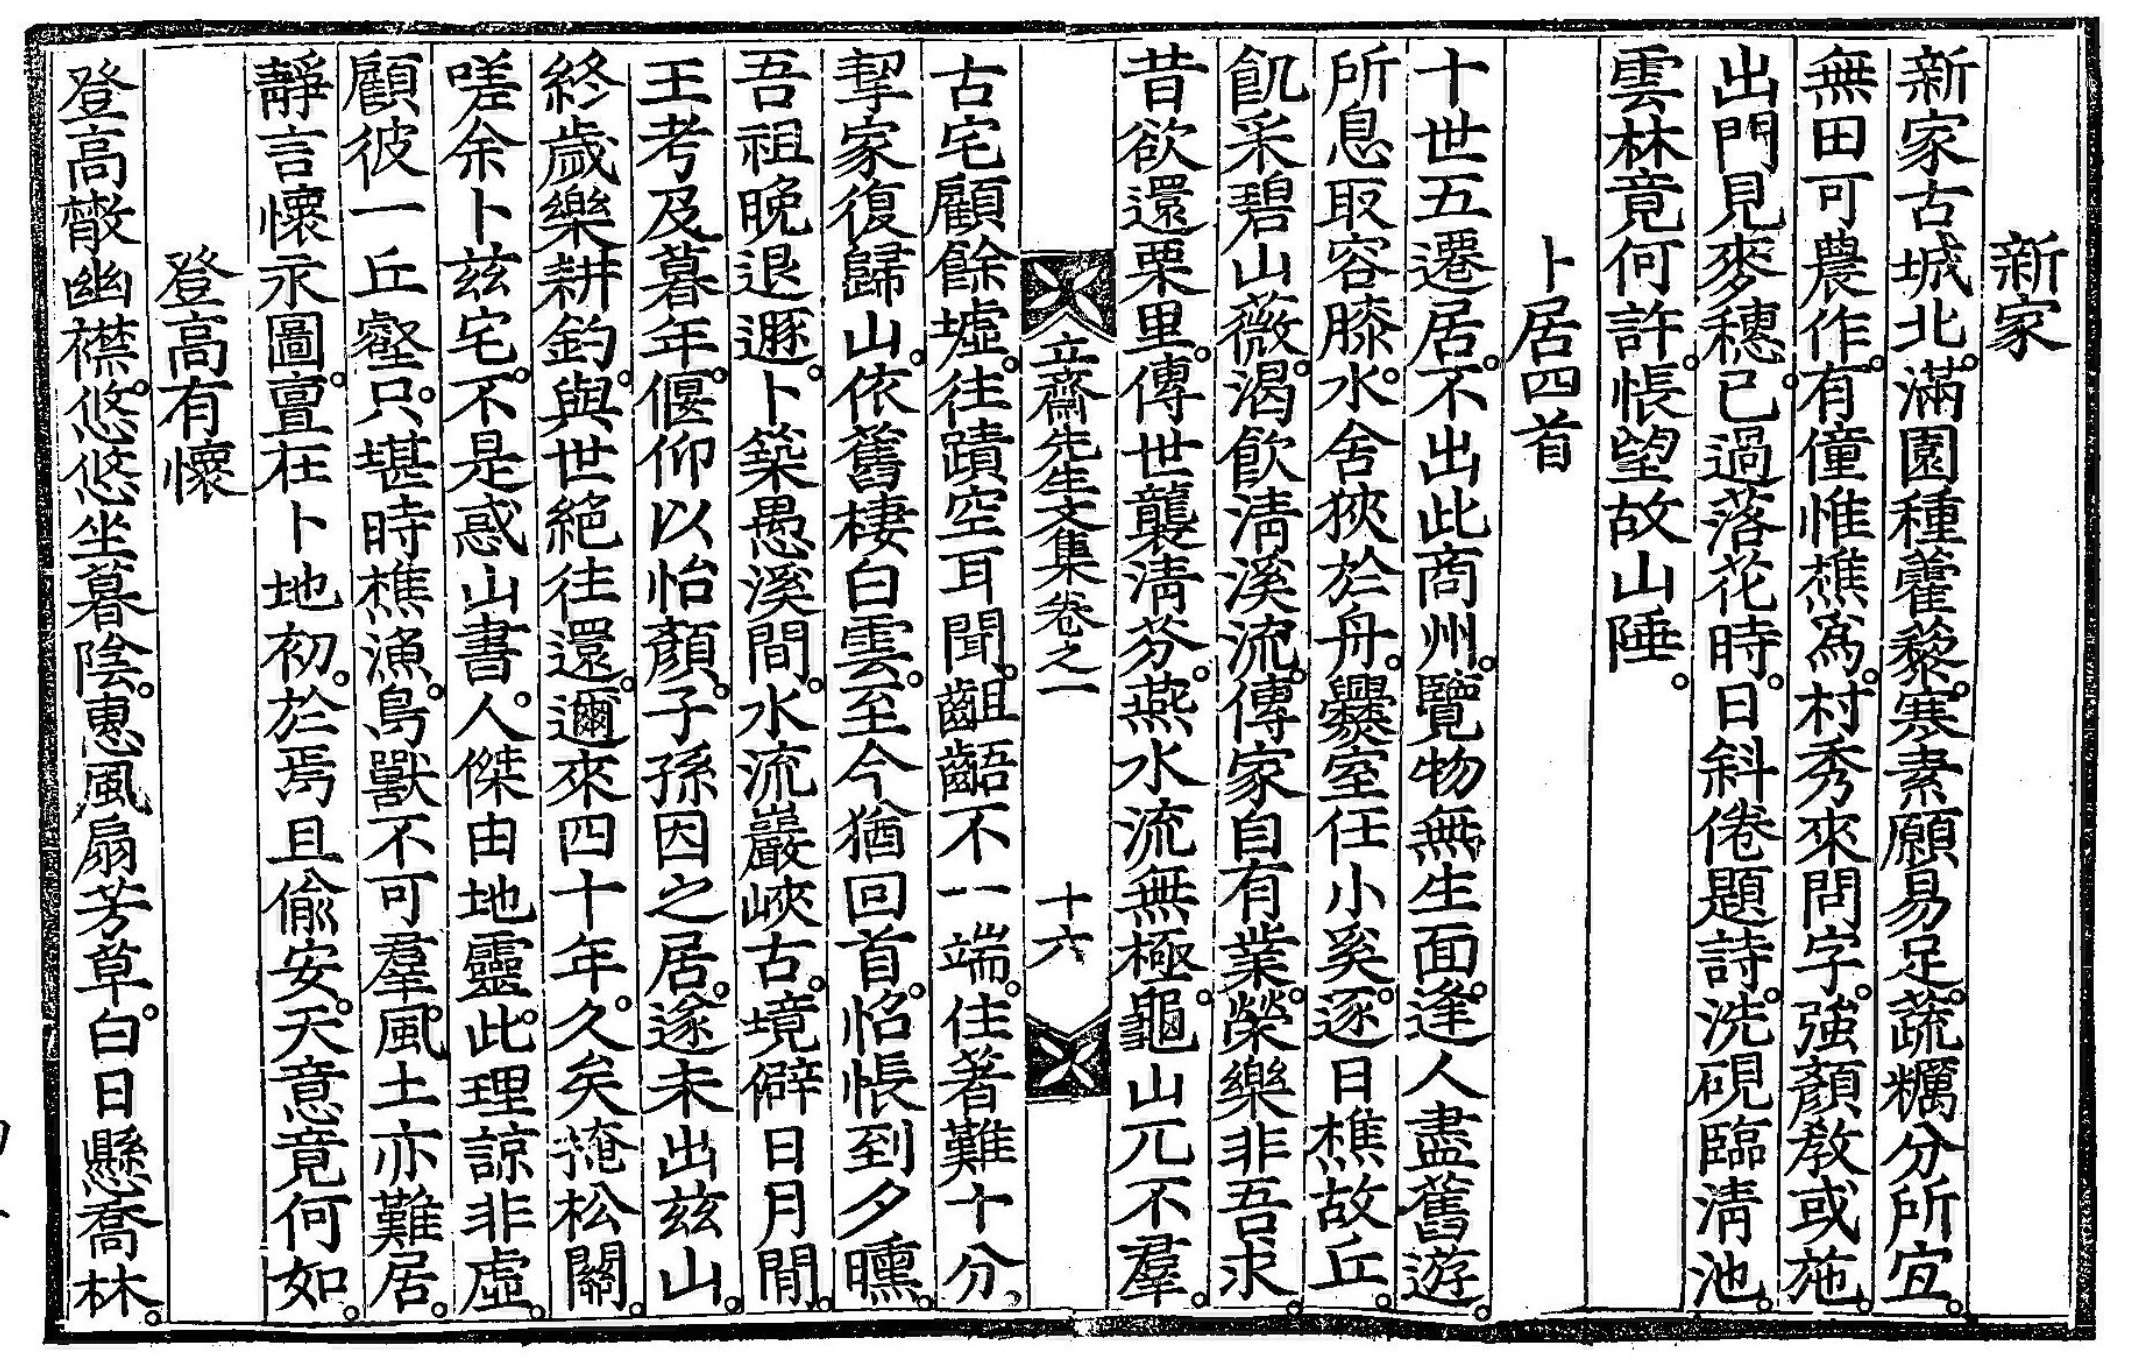 新家
新家古城北。滿園種藿藜。寒素願易足。蔬糲分所宜。
無田可農作。有僮惟樵爲。村秀來問字。強顏教或施。
出門見麥穗。已過落花時。日斜倦題詩。洗硯臨清池。
雲林竟何許。悵望故山陲。
卜居四首
十世五遷居。不出此商州。覽物無生面。逢人盡舊遊。
所息取容膝。水舍狹於舟。爨室任小奚。逐日樵故丘。
飢采碧山薇。渴飮淸溪流。傳家自有業。榮樂非吾求。
昔欲還栗里。傳世襲淸芬。燕水流無極。龜山兀不羣。
立齋先生文集卷之一
十六
古宅顧餘墟。往蹟空耳聞。齟齬不一端。佳著難十分。
挈家復歸山。依舊棲白雲。至今猶回首。怊悵到夕曛。
吾祖晩退遯。卜築愚溪間。水流巖峽古。境僻日月閒。
王考及暮年。偃仰以怡顏。子孫因之居。遂未出玆山。
終歲樂耕釣。與世絶往還。邇來四十年。久矣掩松關。
嗟余卜玆宅。不是惑山書。人傑由地靈。此理諒非虛。
顧彼一丘壑。只堪時樵漁。鳥獸不可羣。風土亦難居。
靜言懷永圖。亶在卜地初。於焉且偸安。天意竟何如。
登高有懷
登高敞幽襟。悠悠坐暮陰。惠風扇芳草。白日懸喬林。